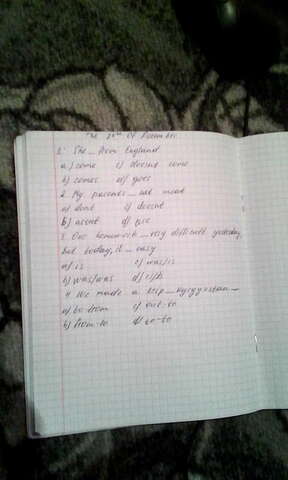 The 20th of December.
1. She_from England
a) come c) doesnt come
b) comes d) goes
2. My parents_eat meat
a) dont c) doesnt
b) arent d)
3. Our homework_very difficult yesterday,
but today, it_easy
a) is c) was/is
b) was/was d) is/
4. We made a trip_Kyrgyzstan_
a) to-from c) out-to
b) from-to d) to-to